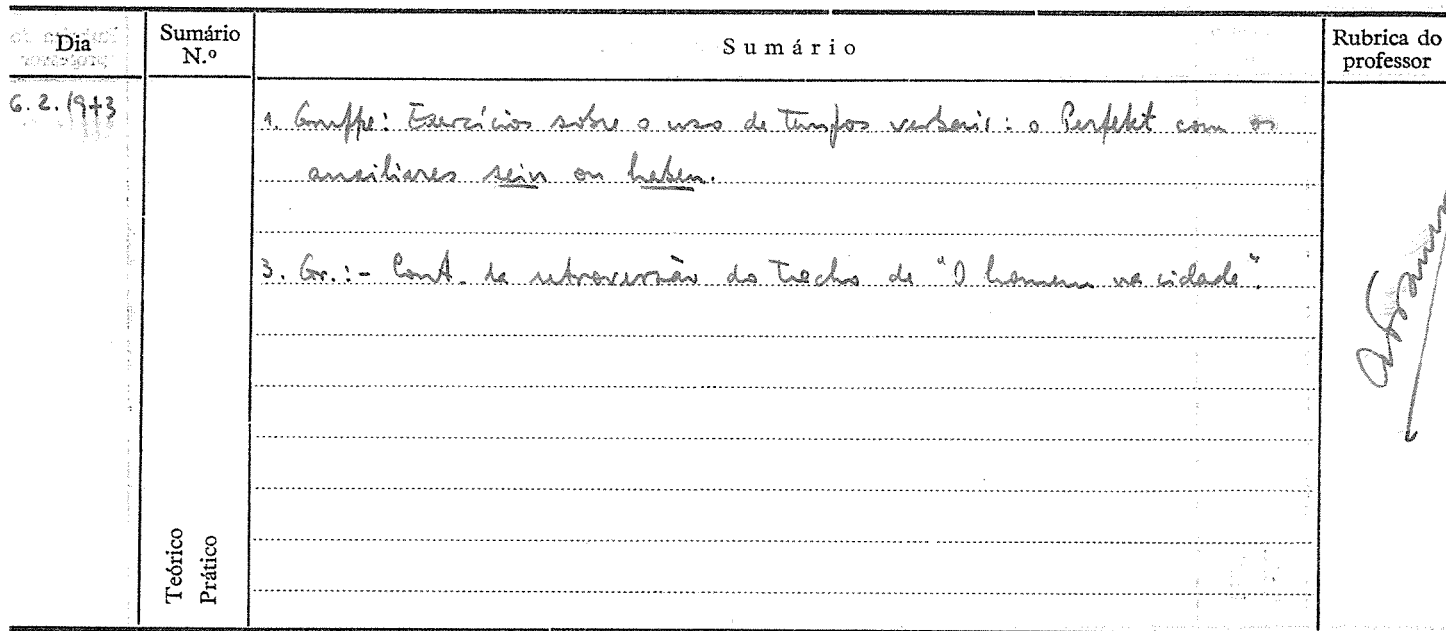 Dia
Sumário N.º
Sumário
Rubrica do professor
6.2.1973
1. Gruppe: Exercícios sôbre o uso de tempos verbais: o Perfekt com os
auxiliares sein ou haben.
3. Gr.:- Cont. da retroversão do trecho de "O homem na cidade".
Teórico
Prático